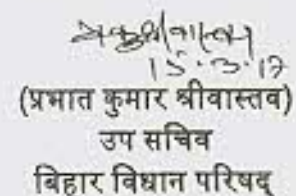 15.3.17
(प्रभात कुमार श्रीवास्तव)
उप सचिव
बिहार विधान परिषद्